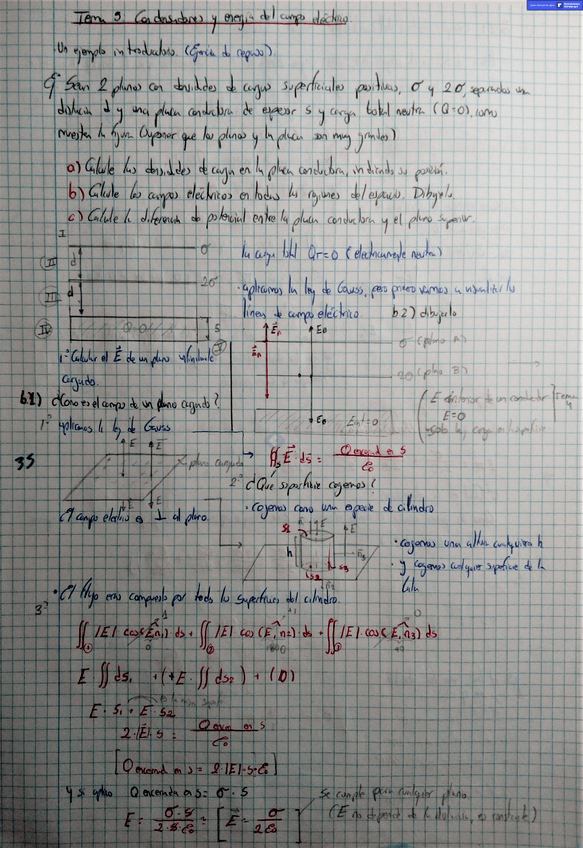 Tema 3. Condensadores y energía del campo eléctrico
Un ejemplo introductorio. (Ejercicio de repaso).
Ej Sean 2 planos con densidades de cargas superficiales positivas, σ y 2σ, separados una
distancia d y una placa conductora de espesor s y carga total neutra (Q=0), como
muestra la figura (suponer que los planos y la placa son muy grandes)
a) Calcule las densidades de carga en la placa conductora, indicando su posición.
b) Calcule los campos eléctricos en todas las regiones del espacio. Dibújelo.
c) Calcule la diferencia de potencial entre la placa conductora y el plano superior.
I
σ
II d
2σ
III d
IV Q=0 s
la carga total QT=0 (eléctricamente neutra)
· aplicamos la ley de Gauss, pero primero vamos a visualizar las
líneas de campo eléctrico b2) dibujalo
EA EB
σ (plano A)
2σ (plano B)
EB Eint=0
(E interior de un conductor
E=0
1º Calcular el E de un plano infinitamente
cargado.
b1) ¿Cómo es el campo de un plano cargado?
1º aplicamos la ley de Gauss
E E
plano cargado
E E
35
El campo eléctrico es ⊥ al plano.
∯s E ds = Q encerrada en S / ε0
2º ¿Qué superficie cogemos?
· cogemos como una especie de cilindro
h
· cogemos una altura cualquiera h
· y cogemos cualquier superficie de la
3º · El flujo eras compuesto por todas las superficies del cilindro.
∬① |E| cos(E,n1) ds + ∬② |E| cos(E,n2) ds + ∬③ |E| cos(E,n3) ds
E ∬ ds1 + (+E ∬ ds2) + (0)
E · S1 + E · S2
2·|E|·S = Q encerrada en S / ε0
[Q encerrada en S = 2·|E|·S·ε0]
Y si aplico Q encerrada en S = σ · S
E = σ·S / 2·S·ε0 = [E = σ / 2ε0]
Se cumple para cualquier plano
(E no depende de la distancia, es constante)